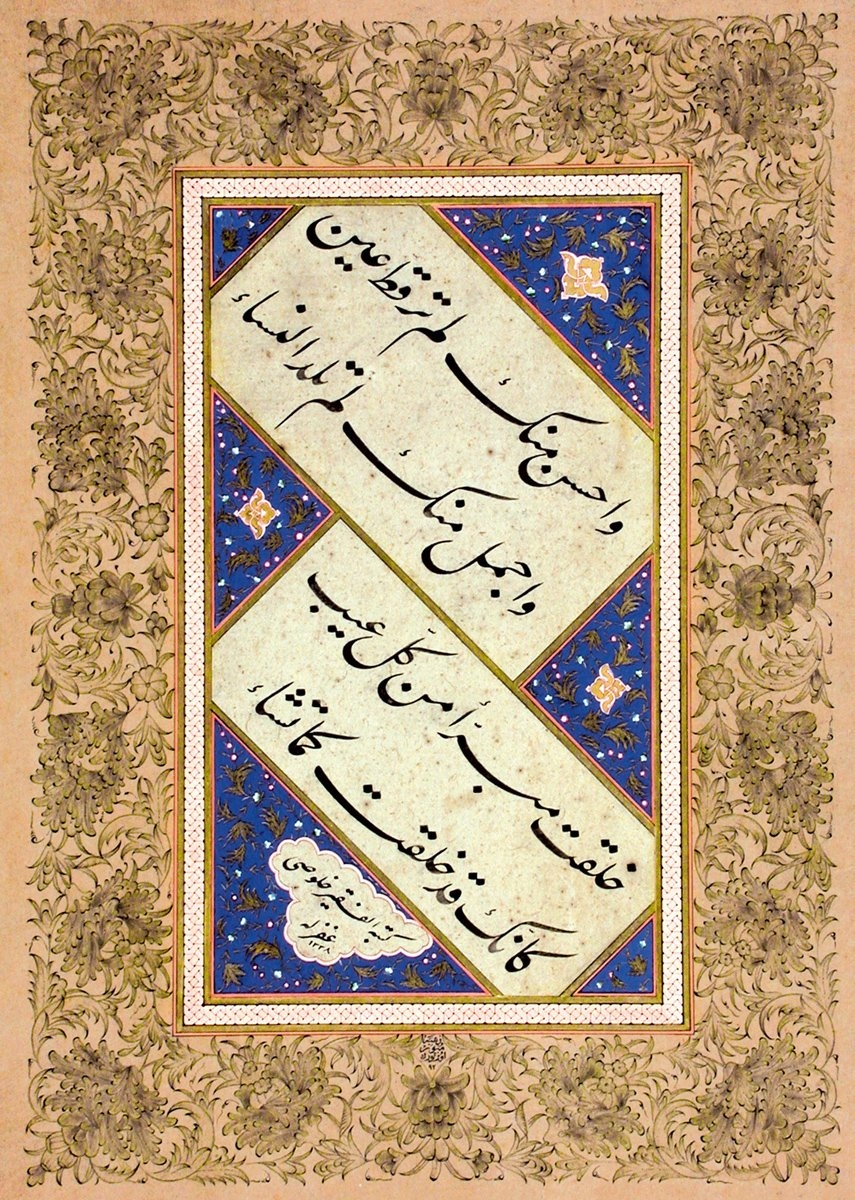 واحسن منك لم تر قط عين
واجمل منك لم تلد النساء
خلقت مبرّأ من كلّ عيب
كانّك قد خلقت كما تشاء
كتبه الفقير خلوصی
غفر له
١٣٣٨